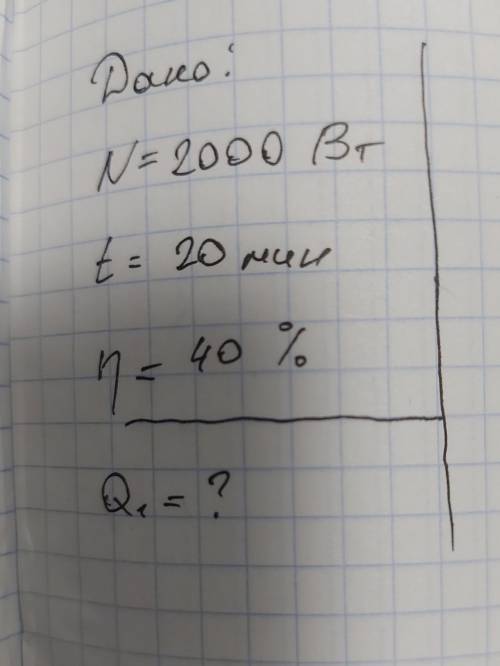 Дано:
N = 2000 Вт
t = 20 мин
η = 40 %
Q₁ = ?